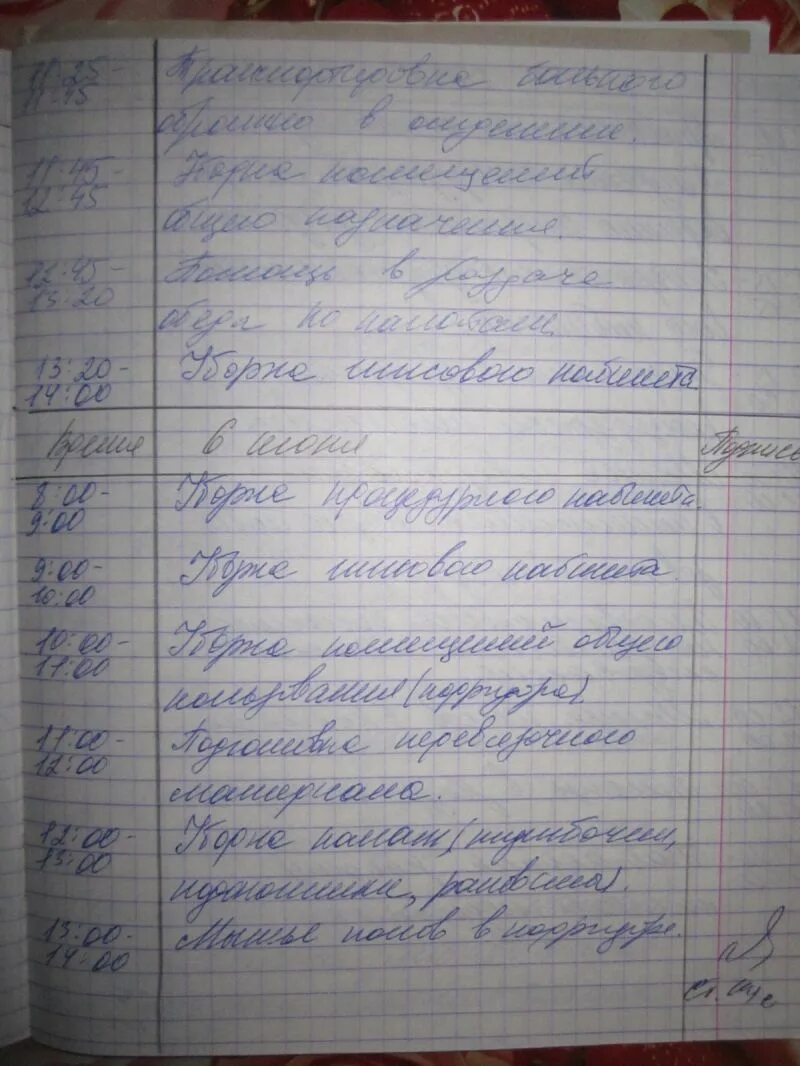 11:25-
11:45
Транспортировка больного
обратно в отделение.
11:45-
12:45
Уборка помещений
общего назначения.
12:45-
13:20
Помощь в раздаче
обеда по палатам.
13:20-
14:00
Уборка гипсового кабинета
Время 6 июня Подпись
8:00-
9:00
Уборка процедурного кабинета.
9:00-
10:00
Уборка гипсового кабинета.
10:00-
11:00
Уборка помещений общего
пользования (корридора).
11:00-
12:00
Подготовка перевязочного
материала.
12:00-
13:00
Уборка палат (тумбочки,
подоконники, раковины).
13:00-
14:00
Мытье полов в корридоре.
ст. м/с